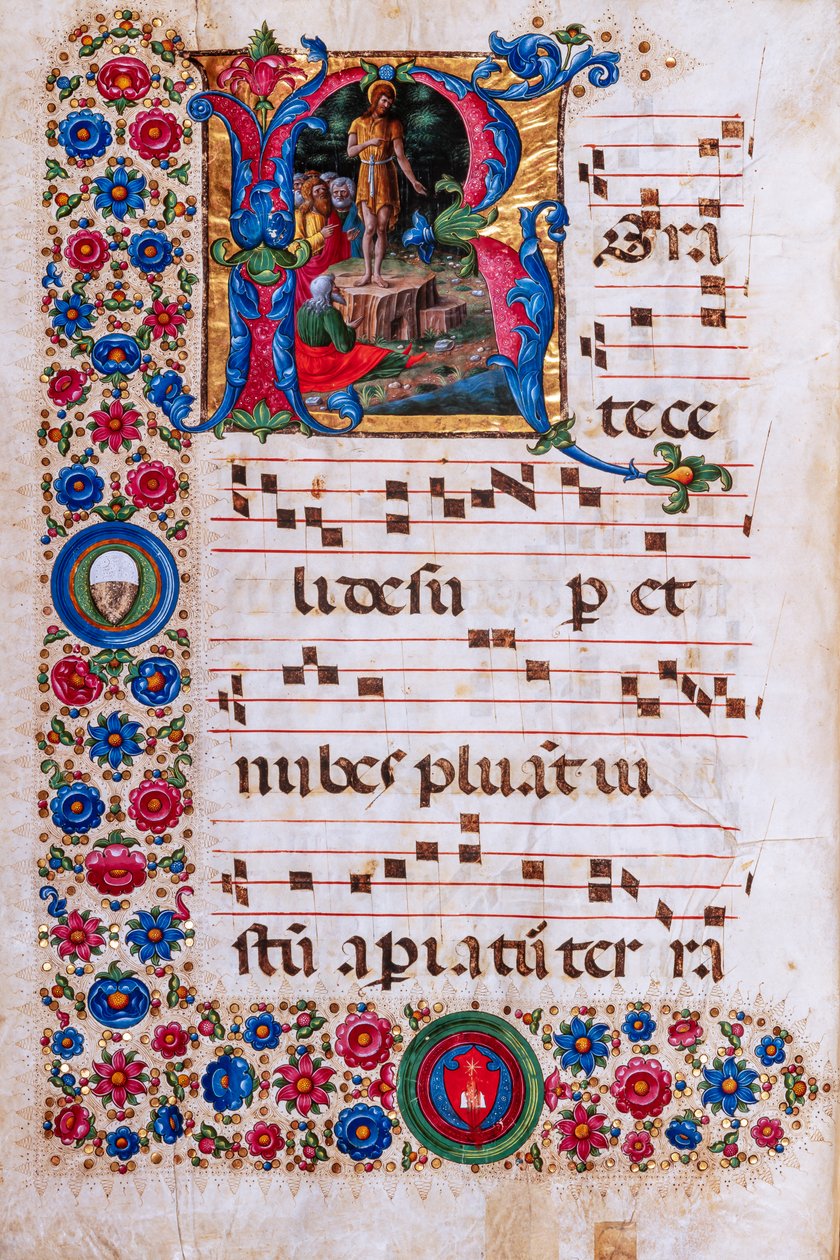 R Ora
te ce
li desu ꝑ et
nubes pluāt iu
stū a ꝑi atur ter ra